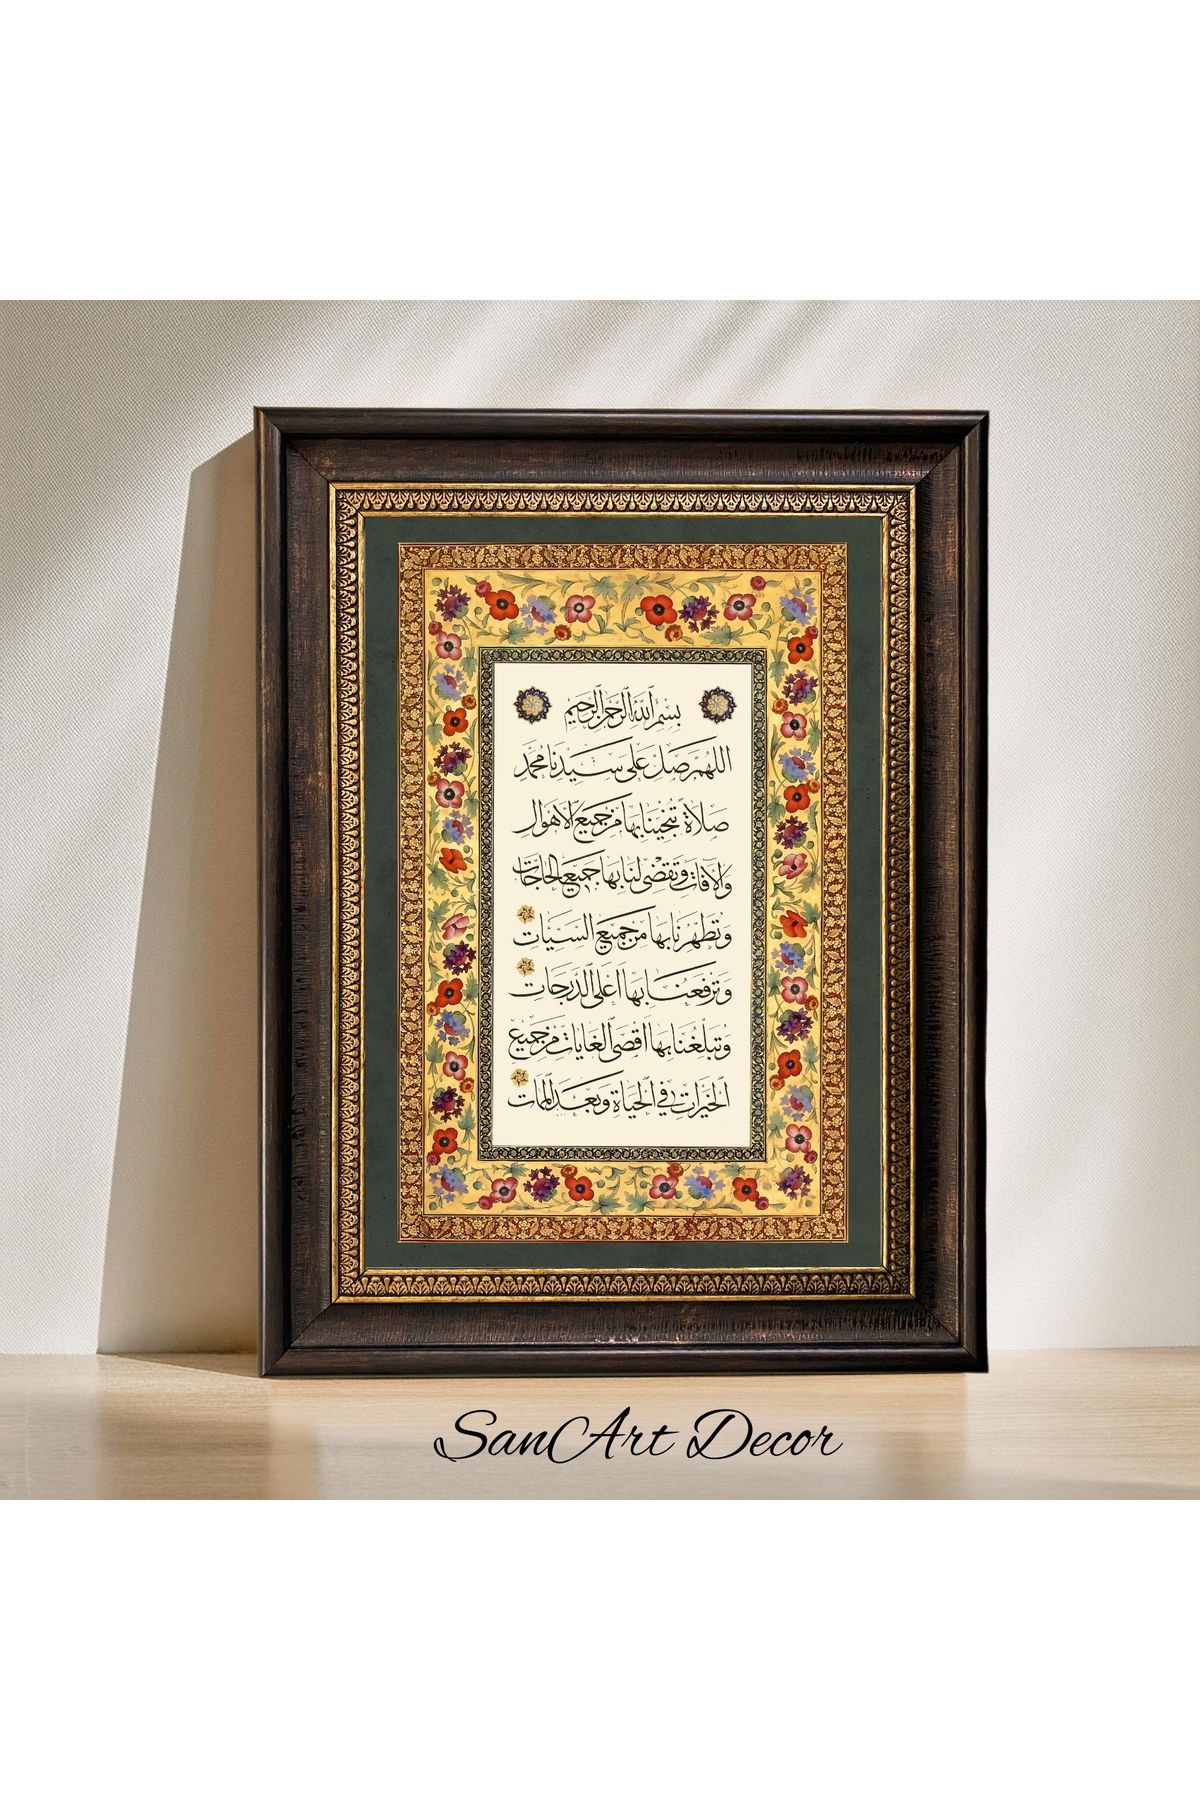 بسم الله الرحمن الرحيم
اللهم صل على سيدنا محمد
صلاة تنجينا بها من جميع الاهوال
والآفات وتقضى لنا بها جميع الحاجات
وتطهرنا بها من جميع السيات
وترفعنا بها اعلى الدرجات
وتبلغنا بها اقصى الغايات من جميع
الخيرات في الحياة وبعد الممات
SanArt Decor